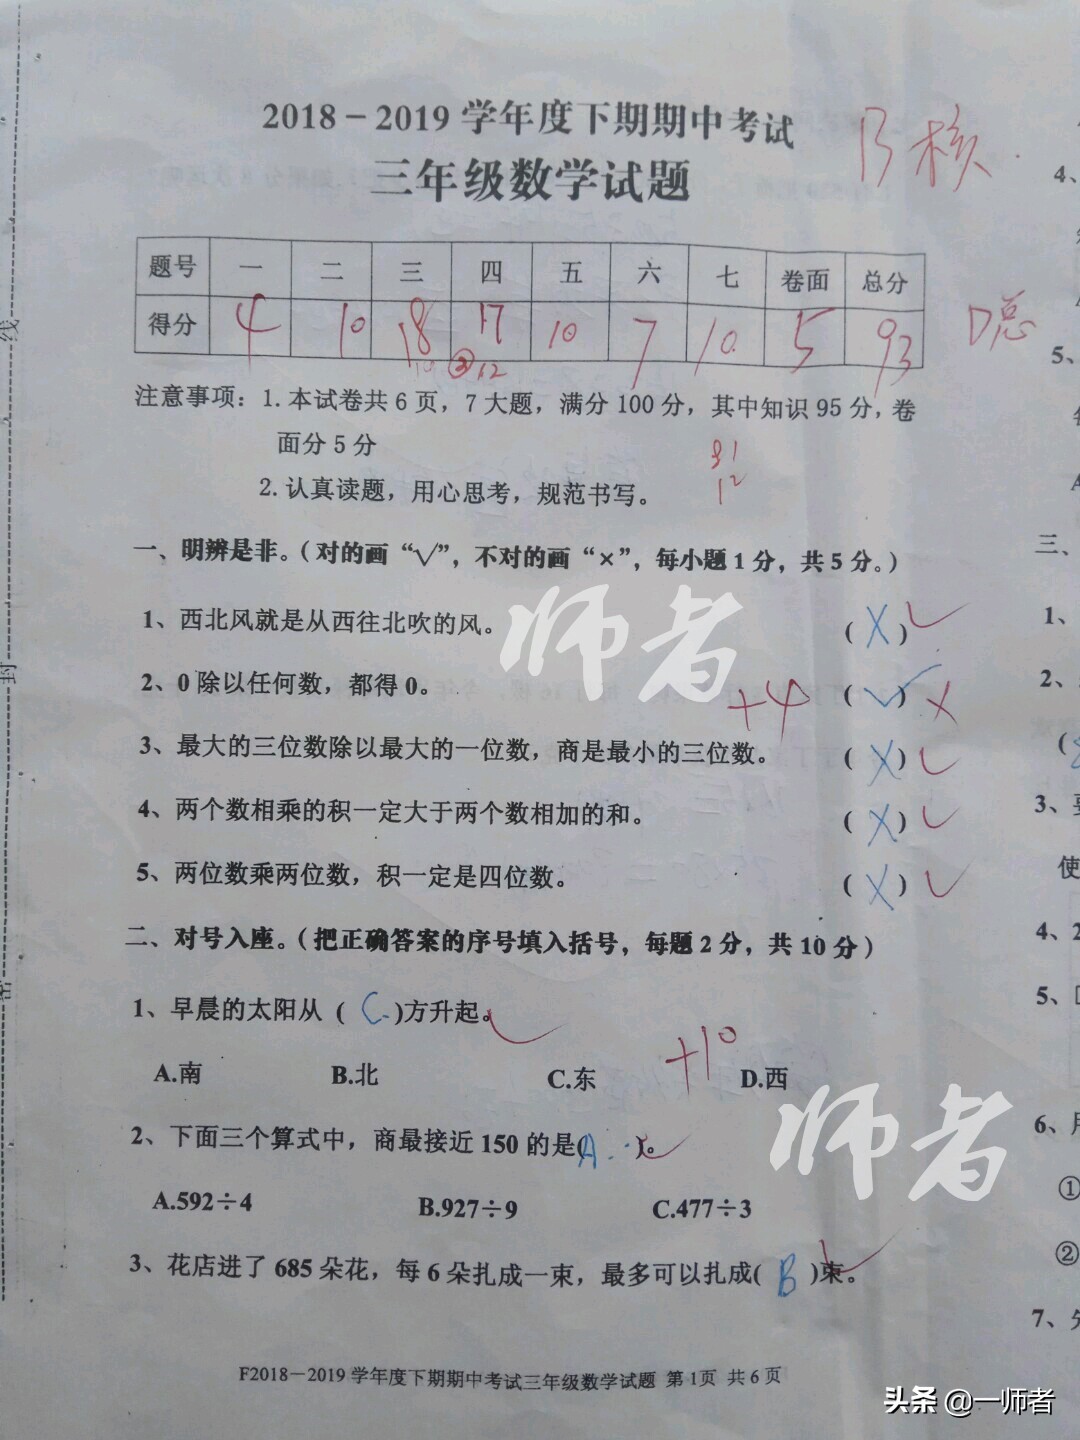 2018－2019 学年度下期期中考试
三年级数学试题
B核
题号 一 二 三 四 五 六 七 卷面 总分
得分 4 10 18 17 10 7 10. 5 93
D总
10 ② 12
注意事项：1. 本试卷共 6 页，7 大题，满分 100 分，其中知识 95 分，卷
面分 5 分
2. 认真读题，用心思考，规范书写。
一、明辨是非。（对的画“√”，不对的画“×”，每小题 1 分，共 5 分。）
1、西北风就是从西往北吹的风。 ( X )
2、0 除以任何数，都得 0。 +4 ( √ ) ×
3、最大的三位数除以最大的一位数，商是最小的三位数。 ( X )
4、两个数相乘的积一定大于两个数相加的和。 ( X )
5、两位数乘两位数，积一定是四位数。 ( X )
二、对号入座。（把正确答案的序号填入括号，每题 2 分，共 10 分）
1、早晨的太阳从 ( C. )方升起。
+10
A.南 B.北 C.东 D.西
2、下面三个算式中，商最接近 150 的是( A. )。
A.592÷4 B.927÷9 C.477÷3
3、花店进了 685 朵花，每 6 朵扎成一束，最多可以扎成( B )束。
F2018－2019 学年度下期期中考试三年级数学试题 第 1页 共 6 页
线
封
密
4、
5、
A
三、
1、
2、
(
3、
使
4、2
5、
6、
①
②
7、
师者
师者
头条 @一师者